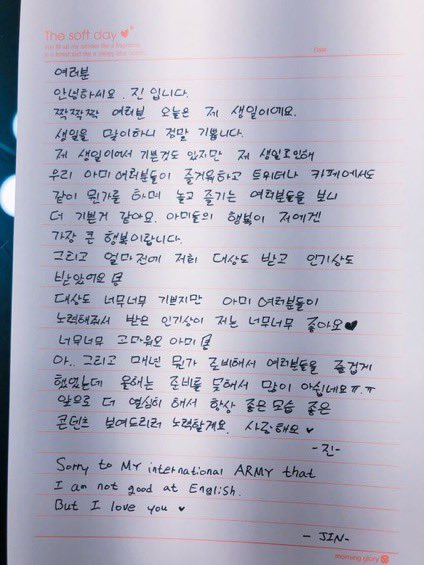 The soft day
Date
여러분
안녕하시요. 진 입니다.
짝짝짝 여러분 오늘은 제 생일이예요.
생일을 많이하니 정말 기쁩니다.
제 생일이어서 기쁜것도 있지만 제 생일로인해
우리 아미 여러분들이 즐거워하고 트위터나 카페에서도
같이 뭔가를 하며 놀고 즐기는 여러분들을 보니
더 기쁜거 같아요. 아미들의 행복이 저에겐
가장 큰 행복이랍니다.
그리고 얼마전에 저희 대상도 받고 인기상도
받았어요
대상도 너무너무 기쁘지만 아미 여러분들이
노력해줘서 받은 인기상이 저는 너무너무 좋아요♥
너무너무 고마워요 아미
아.. 그리고 매년 뭔가 준비해서 여러분들을 즐겁게
했었는데 올해는 준비를 못해서 많이 아쉽네요ㅠ.ㅠ
앞으로 더 열심히 해서 항상 좋은모습 좋은
콘텐츠 보여드리려 노력할게요. 사랑해요 ♥
-진-
Sorry to My international ARMY that
I am not good at English.
But I love you ♥
- JIN-
morning glory